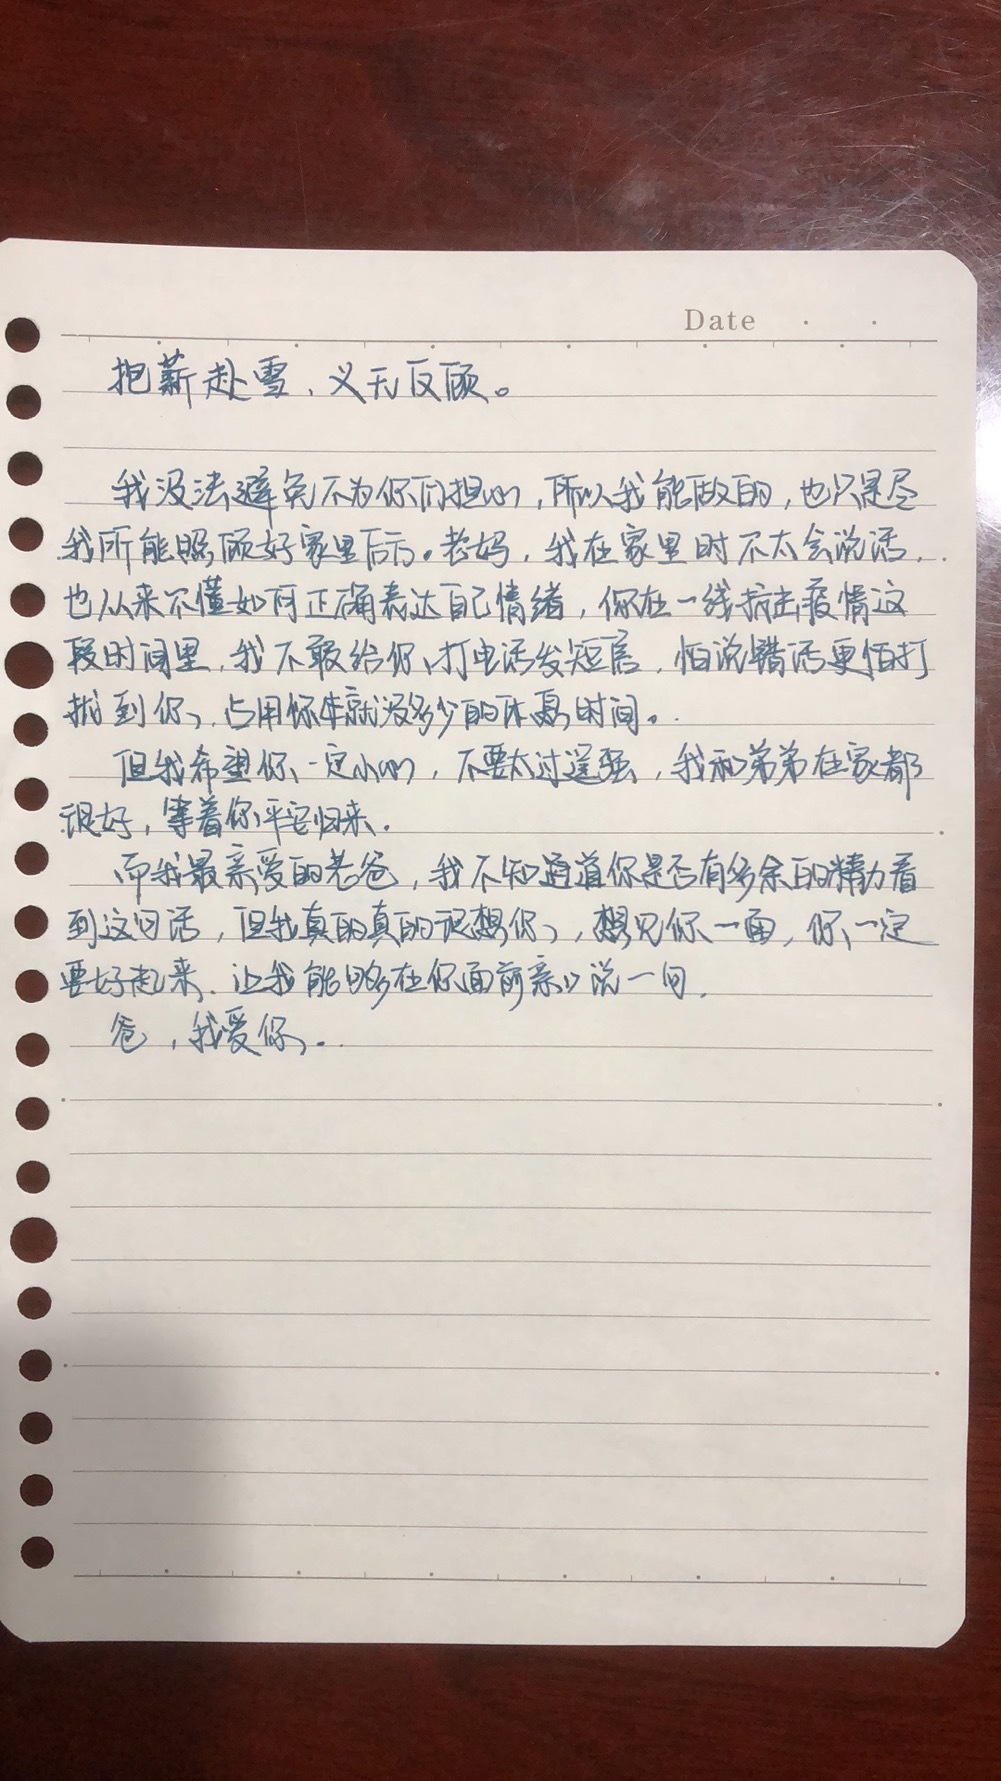 Date
抱薪赴雪，义无反顾。
我没法避免不为你们担心，所以我能做的，也只是尽
我所能照顾好家里后方。老妈，我在家里时不太会说话，
也从来不懂如何正确表达自己情绪，你在一线抗击疫情这
段时间里，我不敢给你打电话发短信，怕说错话更怕打
扰到你，占用你本就没多少的休息时间。
但我希望你一定小心，不要太过逞强，我和弟弟在家都
很好，等着你平安归来。
而我最亲爱的老爸，我不知道道你是否有多余的精力看
到这句话，但我真的真的很想你，想见你一面，你一定
要好起来，让我能够在你面前亲口说一句，
爸，我爱你。